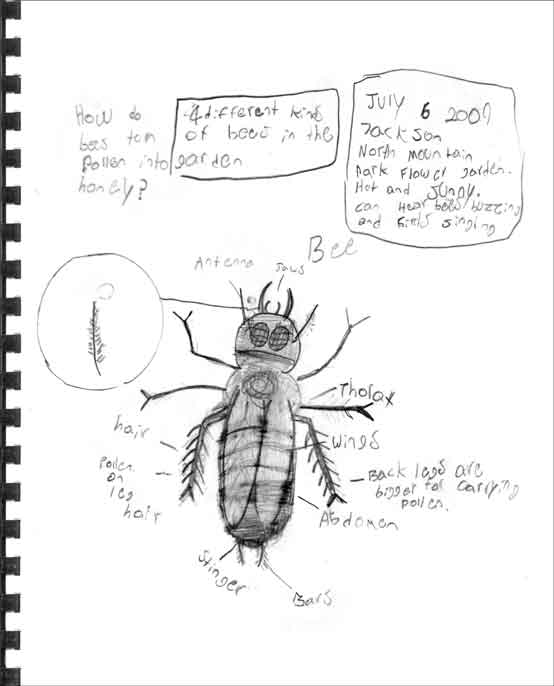 How do
bees torn
Pollen into
honely?
-4 different kinds
of bees in the
garden
July 6 2009
Jackson
North mountain
Park Flower garden.
Hot and Sunny.
can Hear bees buzzing
and birds singing
Bee
Antenna
Jaws
Thorax
hair
wings
Pollen
on
leg
hair
Back legs are
bigger for carrying
pollen.
Abdomen
Stinger
Barbs